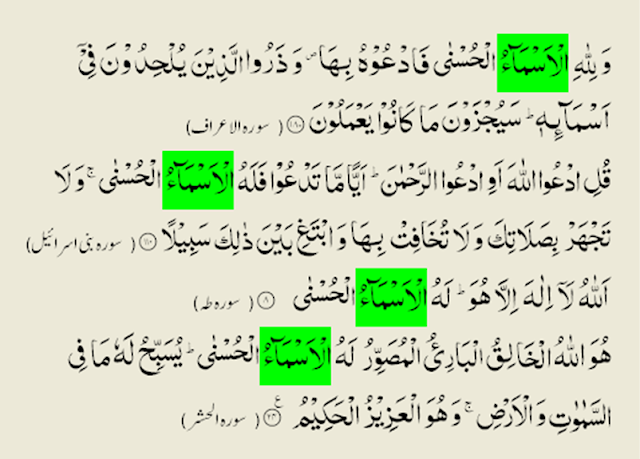 وَ لِلّٰهِ الْاَسْمَآءُ الْحُسْنٰی فَادْعُوْهُ بِهَا ۪ وَ ذَرُوا الَّذِیْنَ یُلْحِدُوْنَ فِیْۤ
اَسْمَآىِٕهٖ ؕ سَیُجْزَوْنَ مَا كَانُوْا یَعْمَلُوْنَ ۝۱۸۰ ( سورہ الاعراف)
قُلِ ادْعُوا اللّٰهَ اَوِ ادْعُوا الرَّحْمٰنَ ؕ اَیًّا مَّا تَدْعُوْا فَلَهُ الْاَسْمَآءُ الْحُسْنٰی ۚ وَ لَا
تَجْهَرْ بِصَلَاتِكَ وَ لَا تُخَافِتْ بِهَا وَ ابْتَغِ بَیْنَ ذٰلِكَ سَبِیْلًا ۝۱۱۰ ( سورہ بنی اسرائیل)
اَللّٰهُ لَاۤ اِلٰهَ اِلَّا هُوَ ؕ لَهُ الْاَسْمَآءُ الْحُسْنٰی ۝۸ ( سورہ طہ)
هُوَ اللّٰهُ الْخَالِقُ الْبَارِئُ الْمُصَوِّرُ لَهُ الْاَسْمَآءُ الْحُسْنٰی ؕ یُسَبِّحُ لَهٗ مَا فِی
السَّمٰوٰتِ وَ الْاَرْضِ ۚ وَ هُوَ الْعَزِیْزُ الْحَكِیْمُ ۝۲۴ ع ( سورہ الحشر)